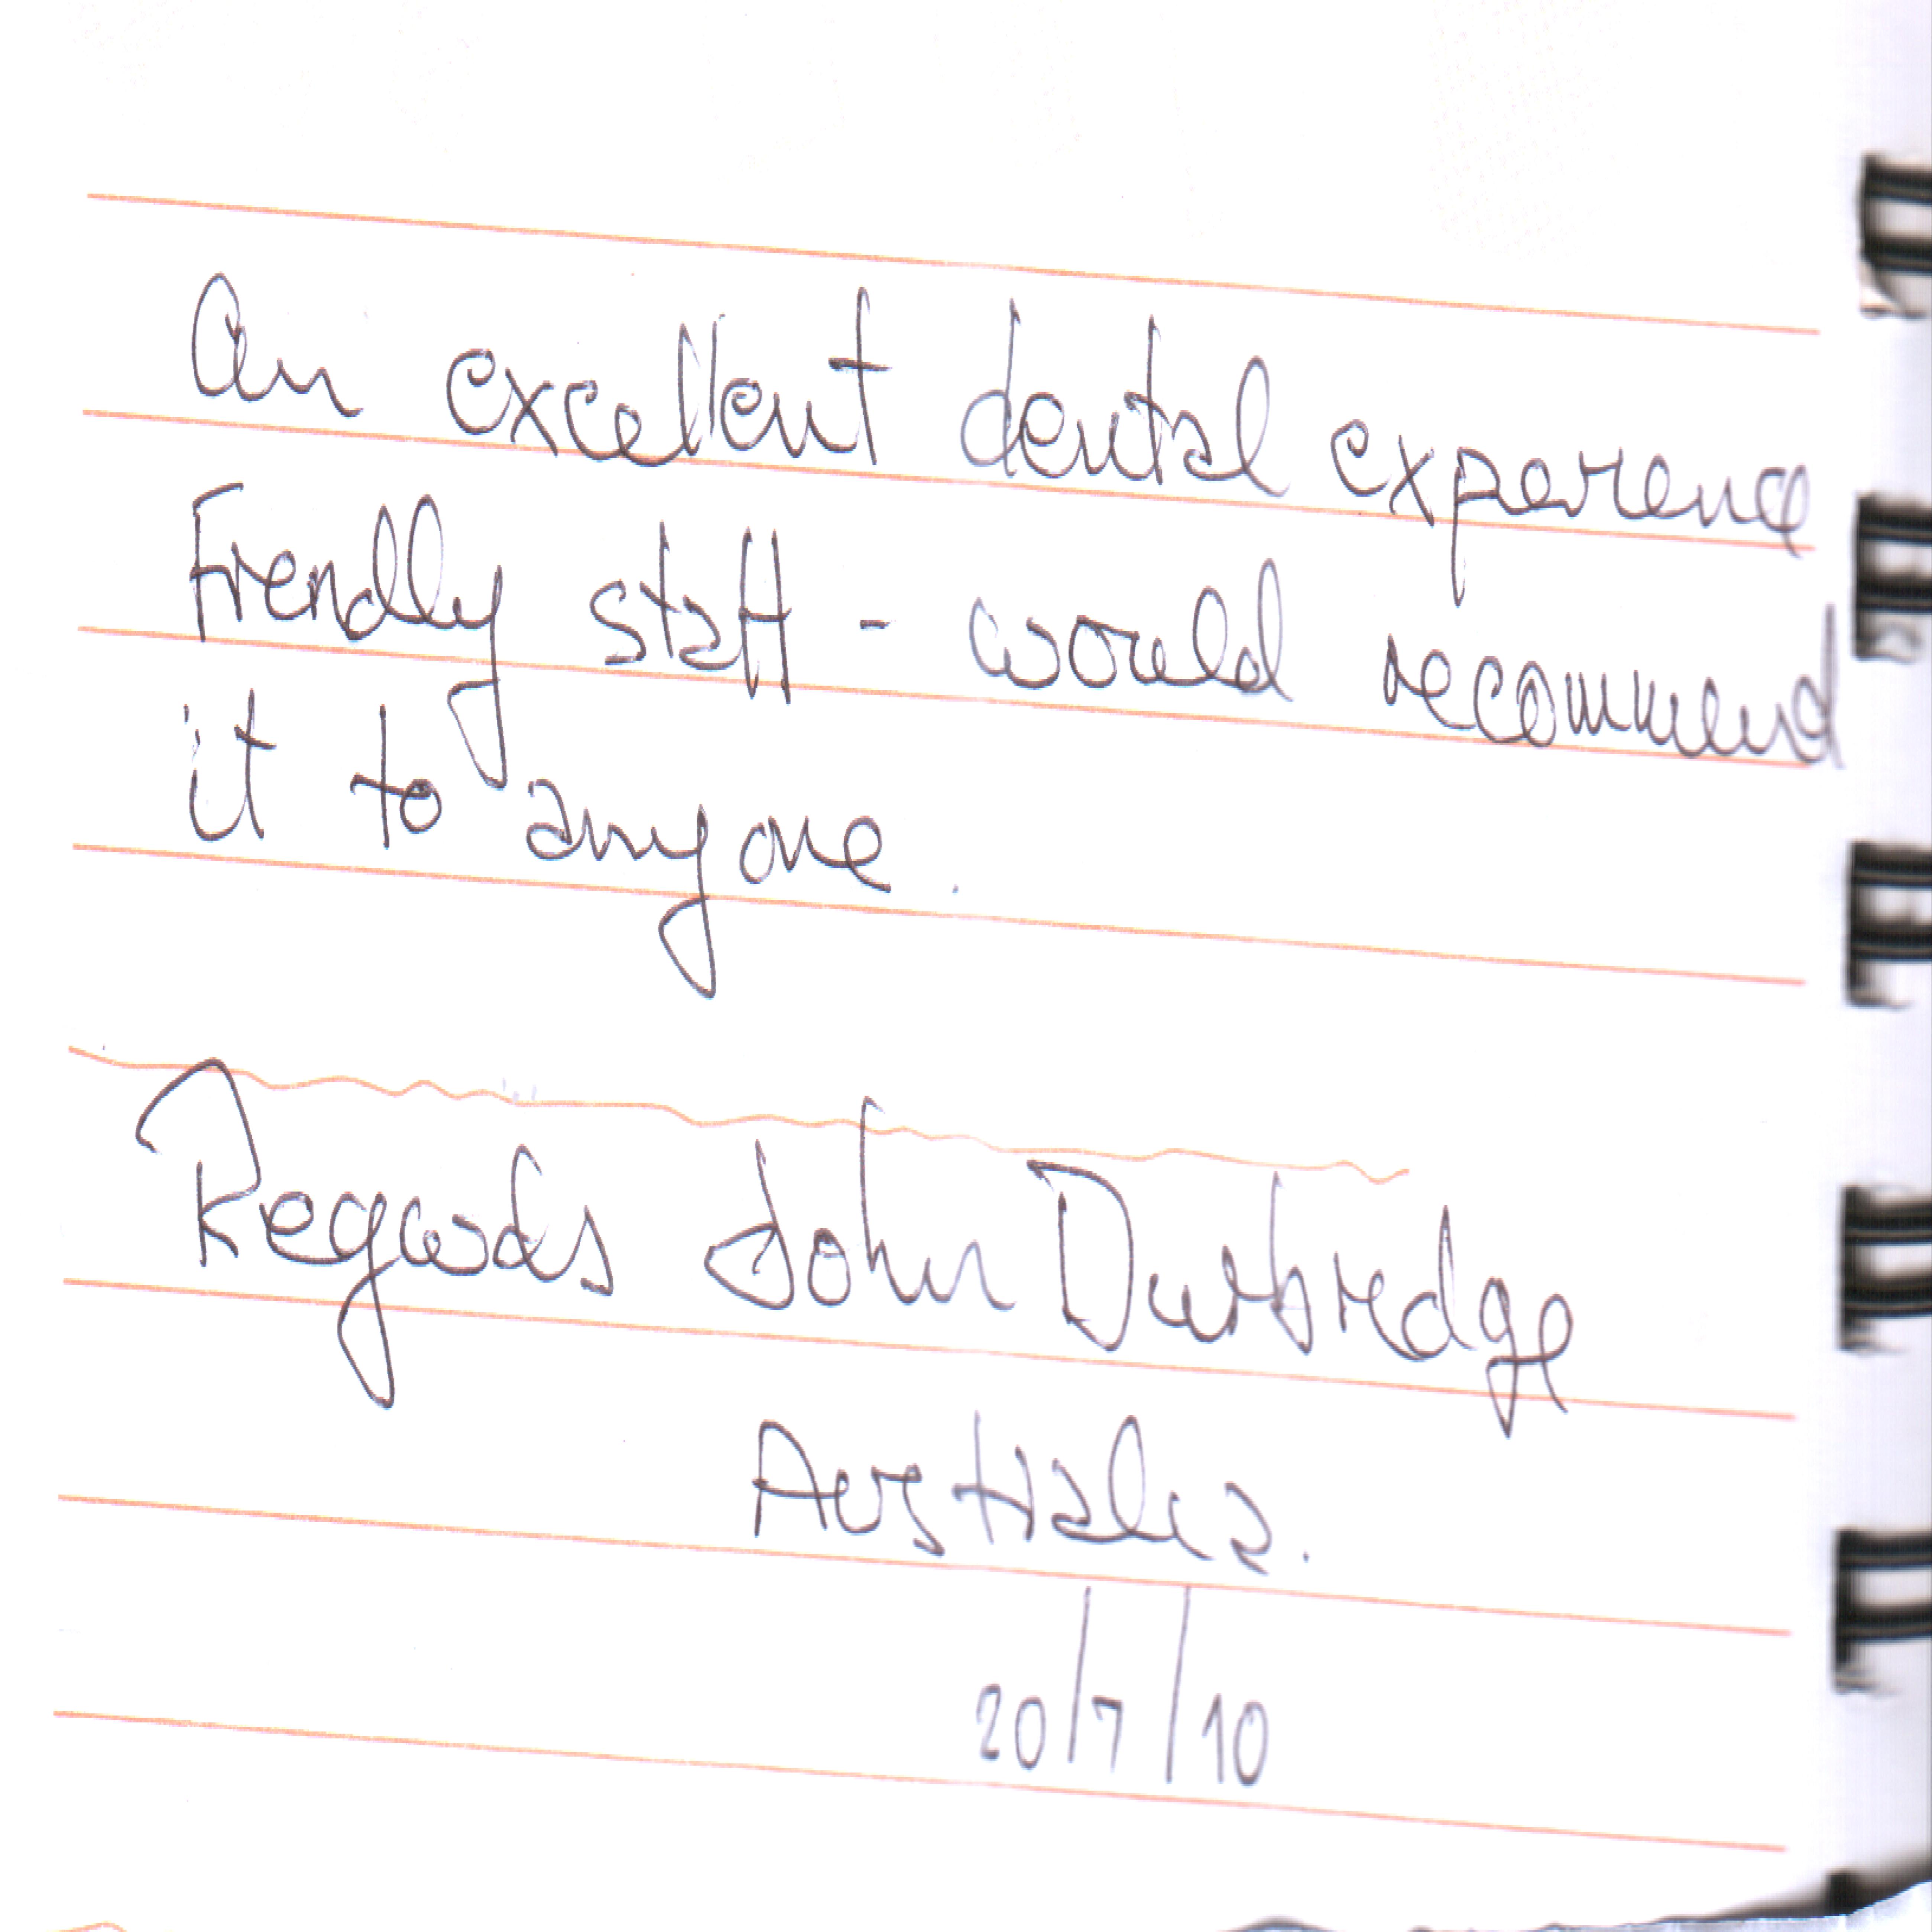 An excellent dental experience
Friendly staff - would recommend
it to anyone.
Regards John Durbridge
Australia.
20/7/10